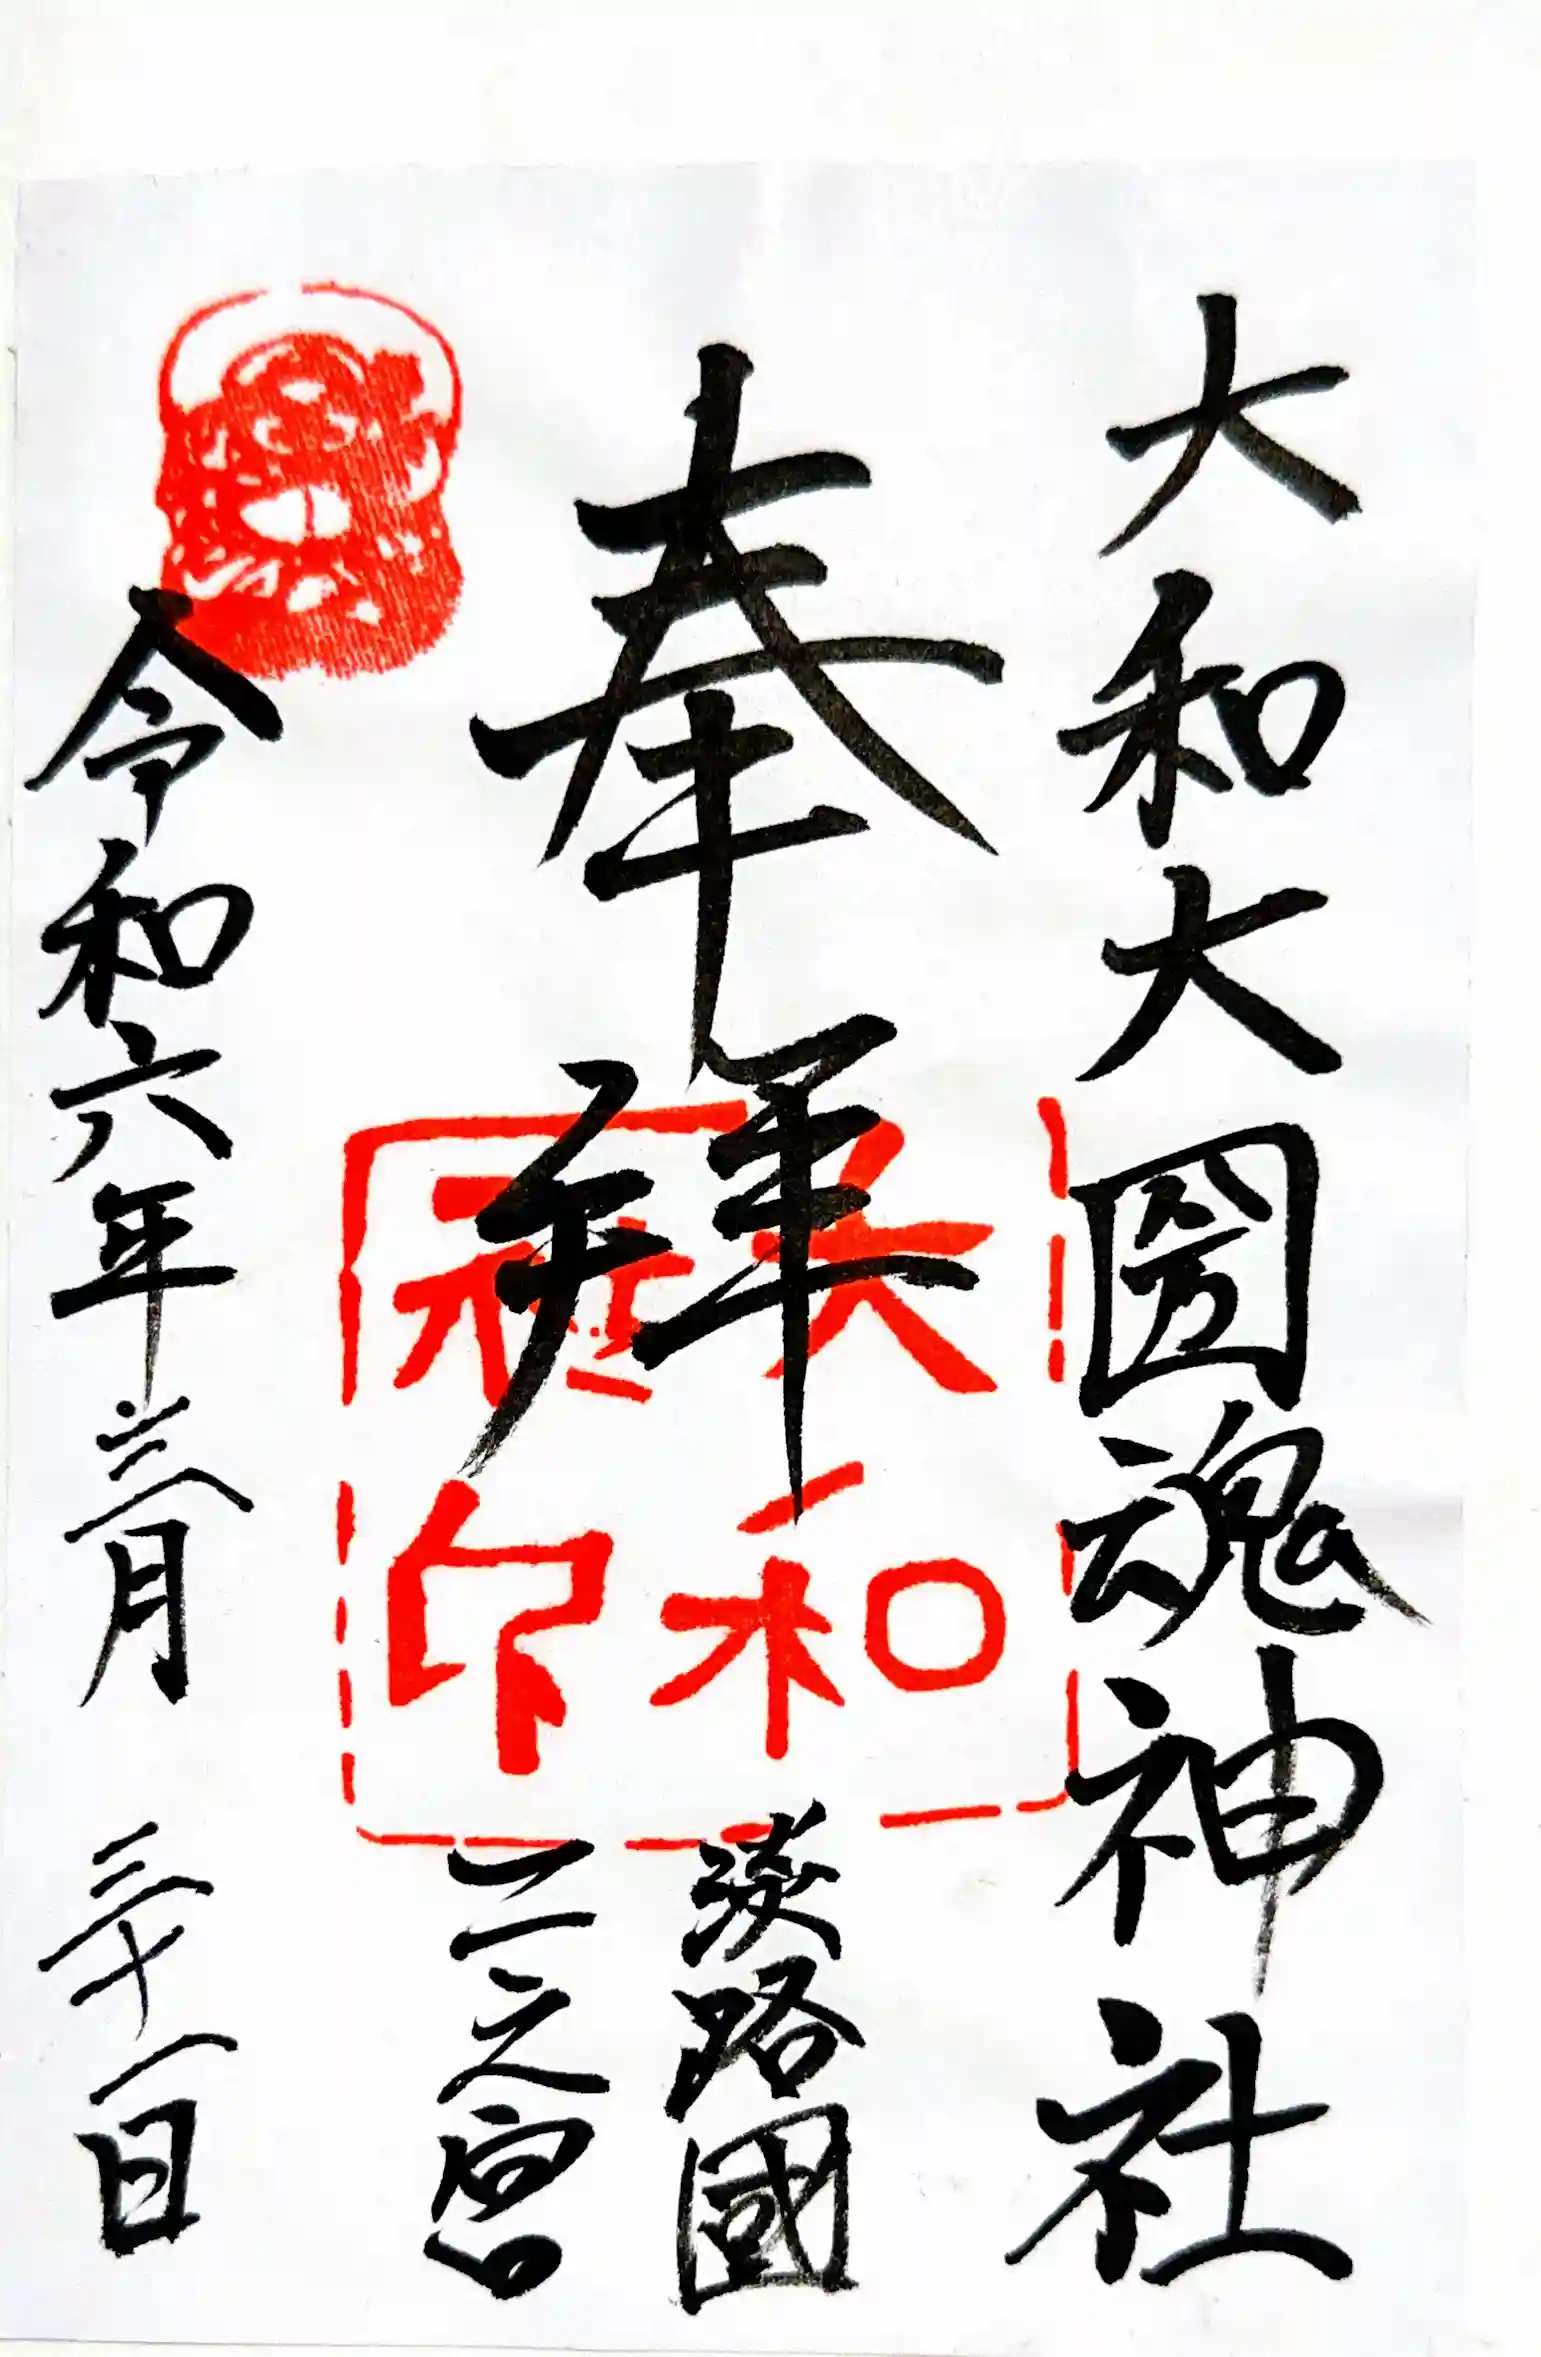 大和大圀魂神社
奉拝
淡路國
二之宮
大和社印
令和六年三月三十一日